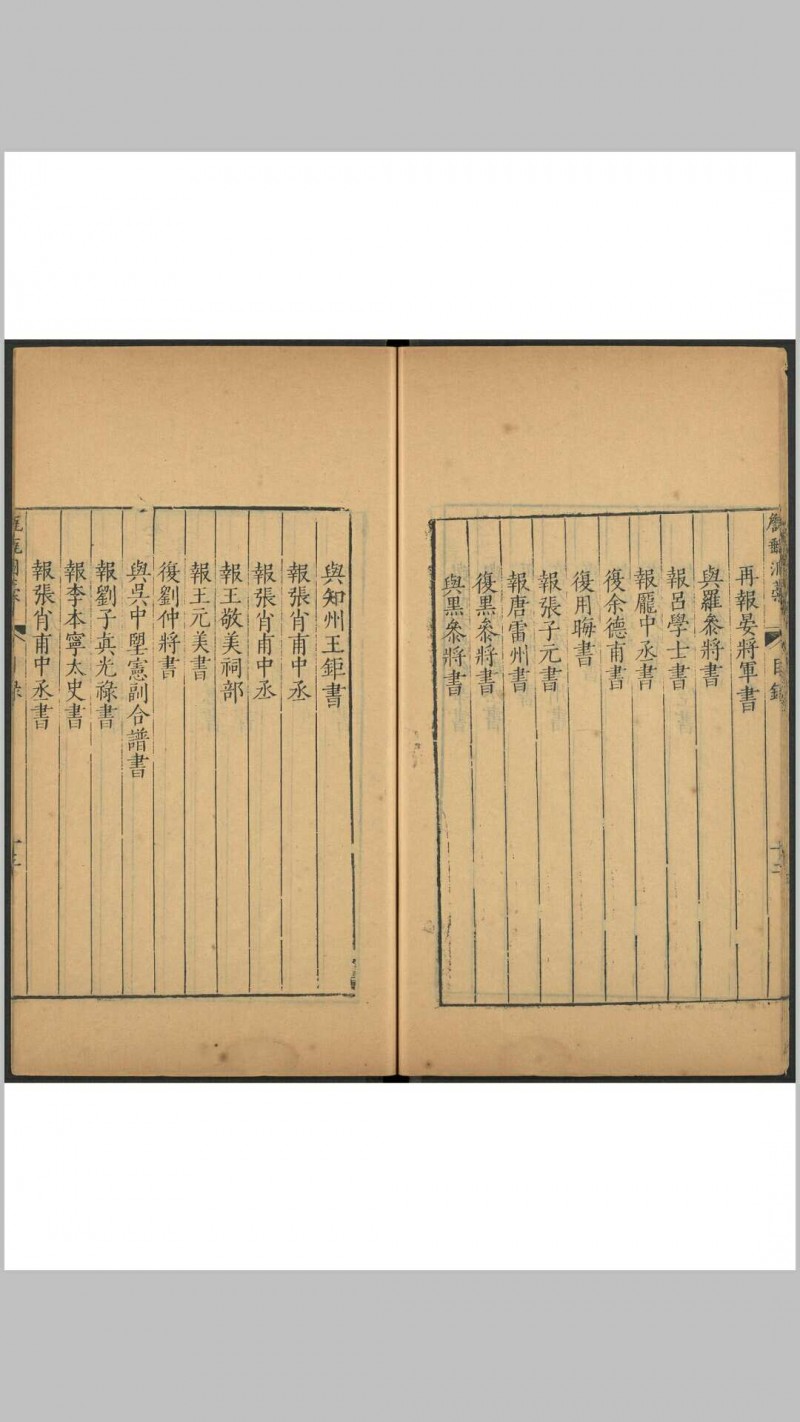 甔甀洞藁
目錄
十二
再報晏將軍書
與羅叅將書
報呂學士書
報龎中丞書
復余德甫書
復用晦書
報張子元書
報唐雷州書
復黑叅將書
與黑叅將書
與知州王鉅書
報張肖甫中丞
報張肖甫中丞
報王敬美祠部
報王元美書
復劉仲將書
與吳中朢憲副合譜書
報劉子真光祿書
報李本寧太史書
報張肖甫中丞書